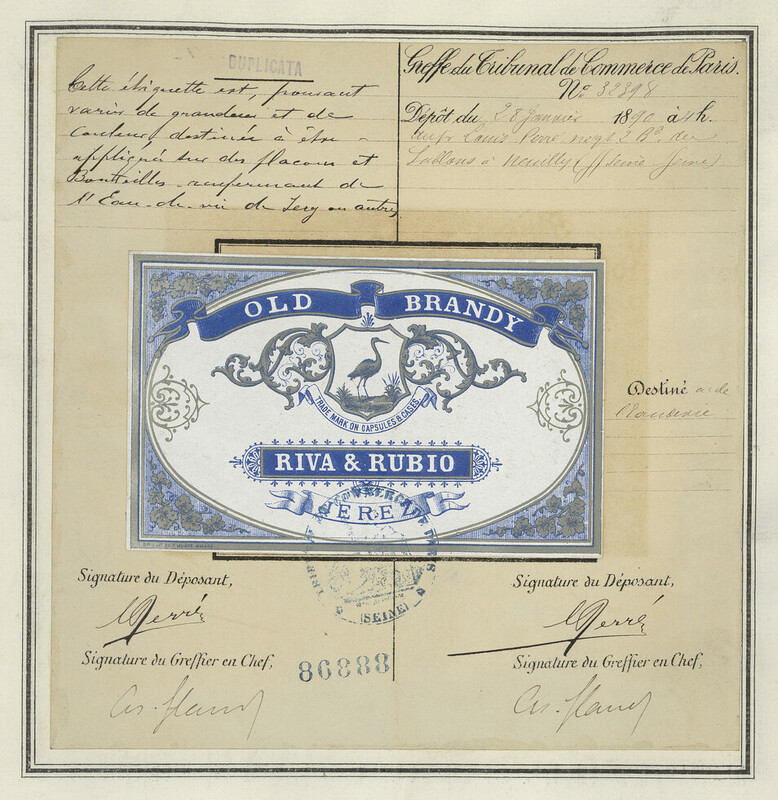 DUPLICATA
Cette étiquette est, pouvant
varier de grandeur et de
couleur, destinée à être
appliquée sur des flacons et
Bouteilles renfermant de
l'Eau-de-vie de Jerez ou autres
Greffe du Tribunal de Commerce de Paris.
No 32398
Dépôt du 28 Janvier 1890 à 4h.
Louis Perré, négt 2 Bd des
Sablons à Neuilly (Seine)
OLD BRANDY
TRADE MARK ON CAPSULES & CASES
RIVA & RUBIO
Destiné à de
l'Eau de vie
TRIBUNAL DE COMMERCE DE PARIS
(SEINE)
Signature du Déposant,
LPerré
Signature du Greffier en Chef,
86888
Signature du Déposant,
LPerré
Signature du Greffier en Chef,